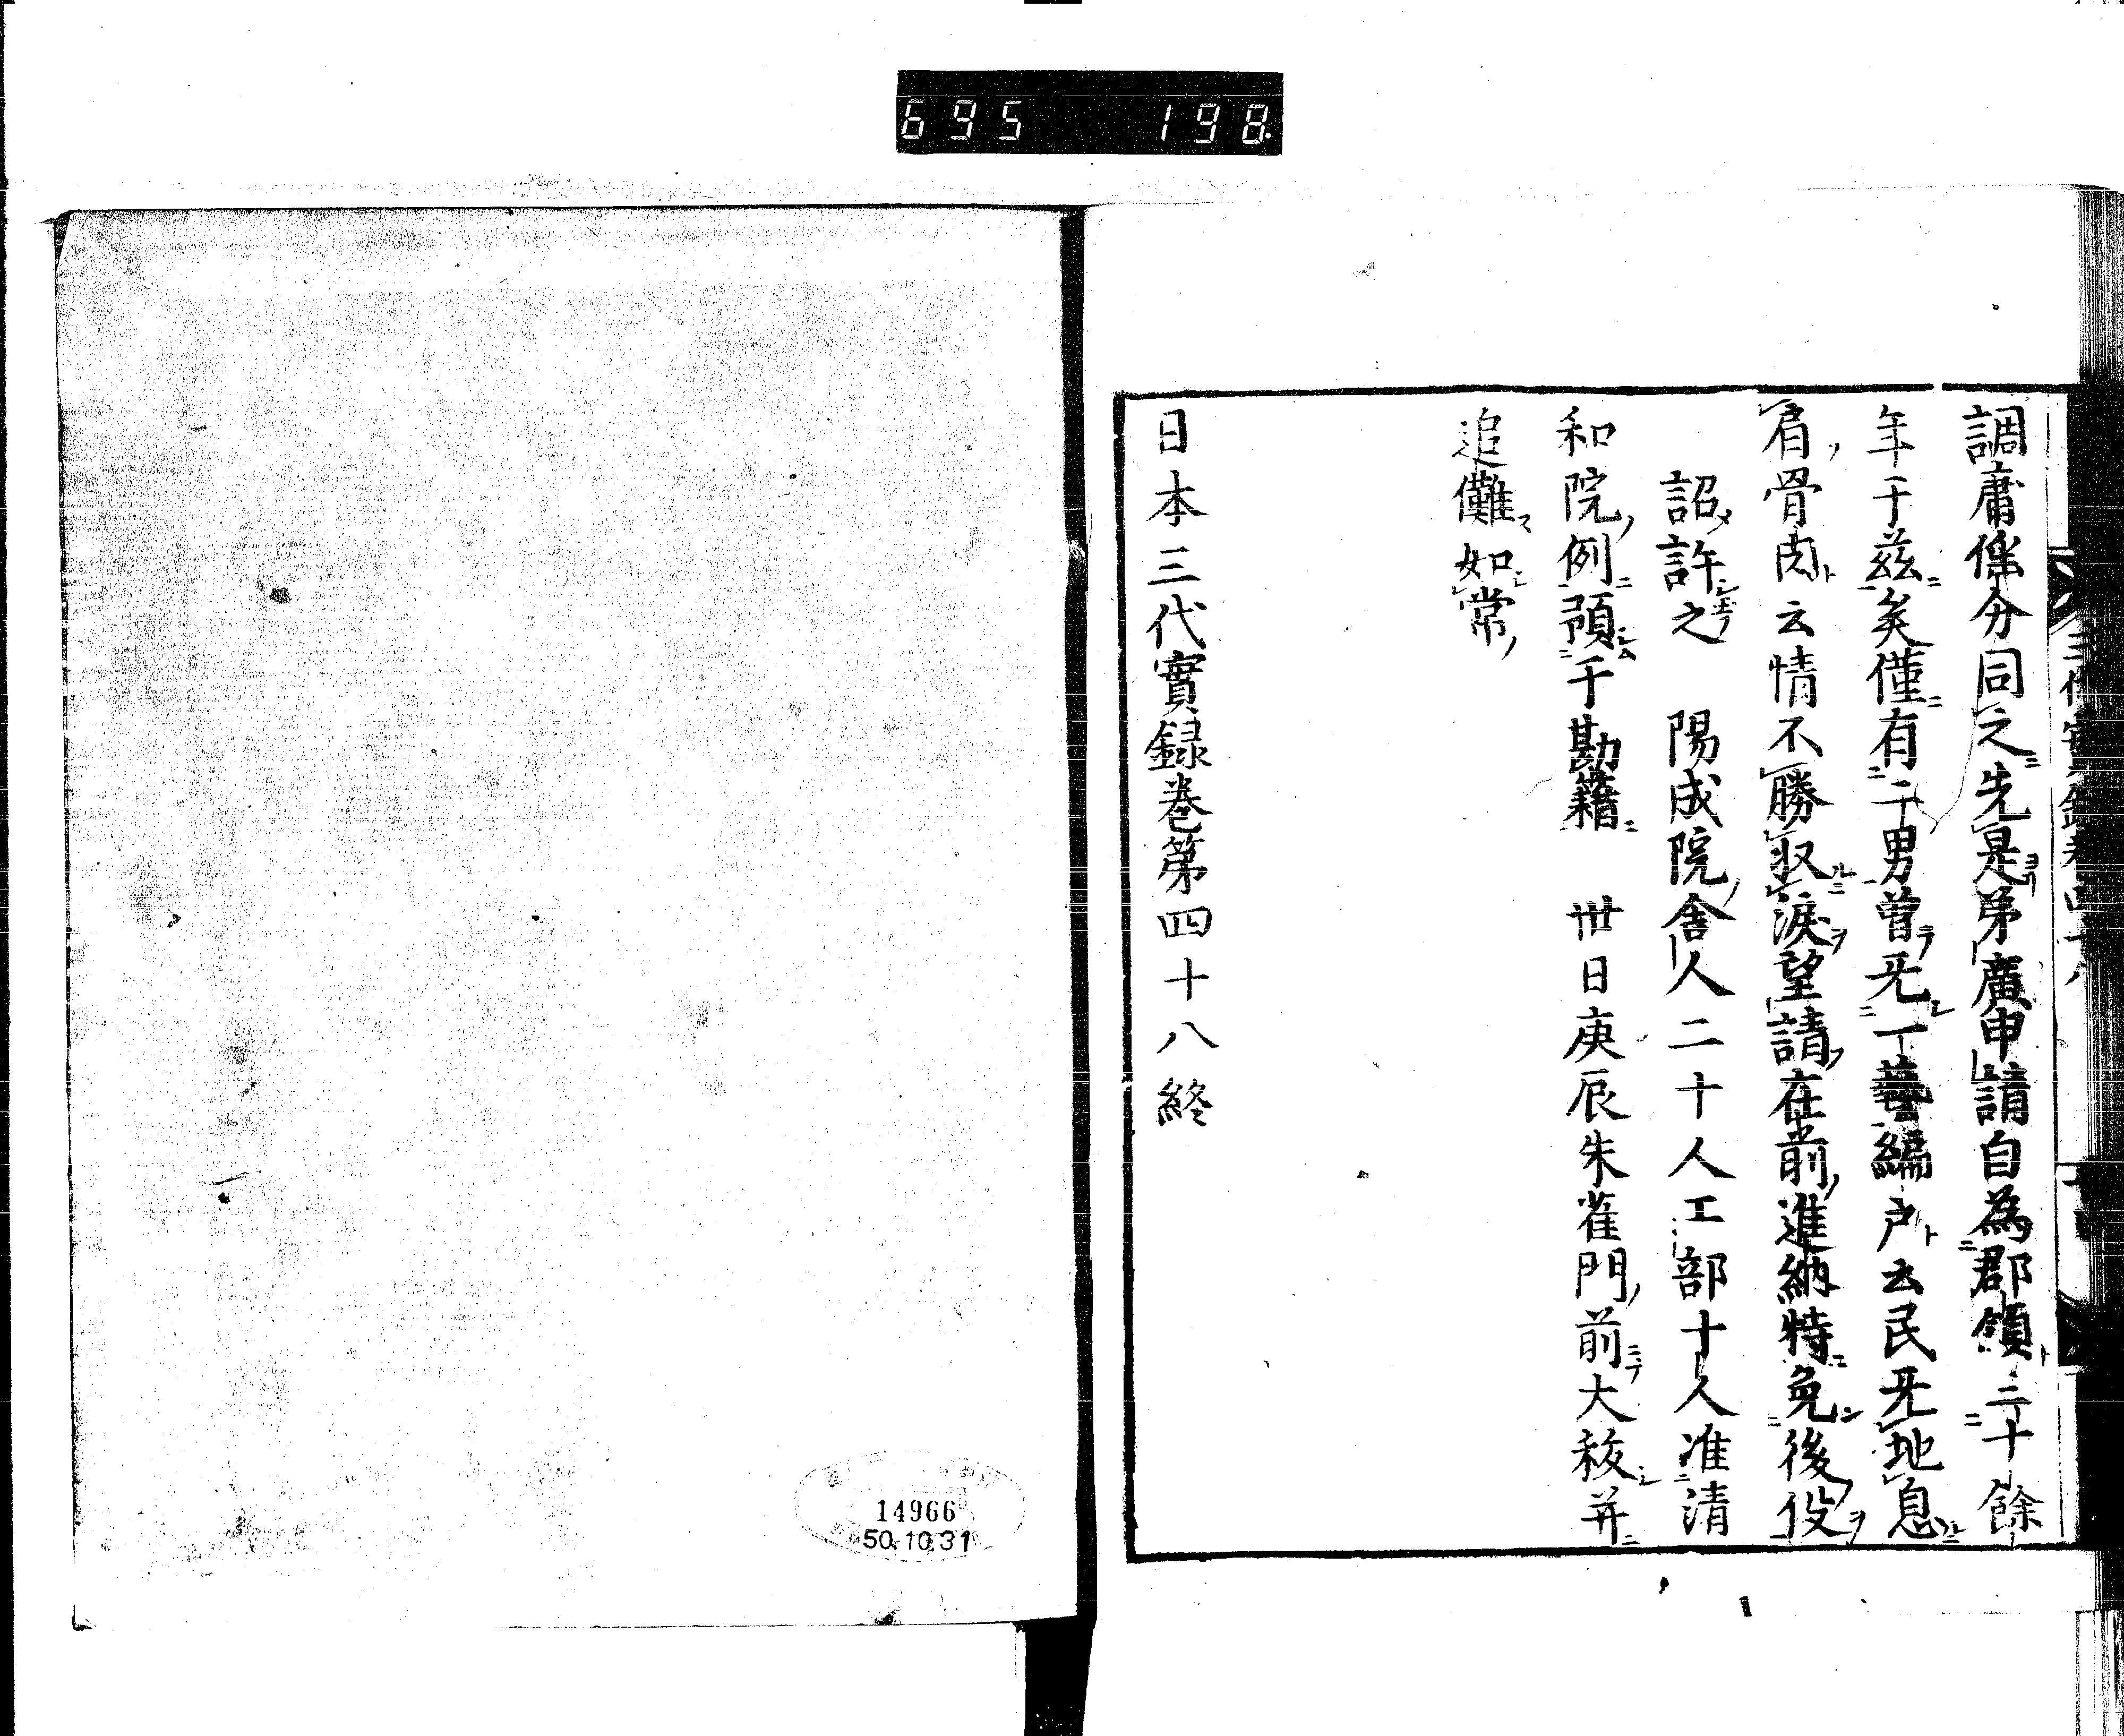 695 198
調庸傜分同之先是弟廣申請自為郡領二十餘
年于茲矣僅有二男曽无一藝編戸云民无地息
肩骨肉云情不勝収淚望請在前進納特免後役
詔許之 陽成院舎人二十人工部十人准清
和院例預于勘籍 丗日庚辰朱雀門前大秡并
追儺如常
日本三代實録巻第四十八終
14966
50.10.31